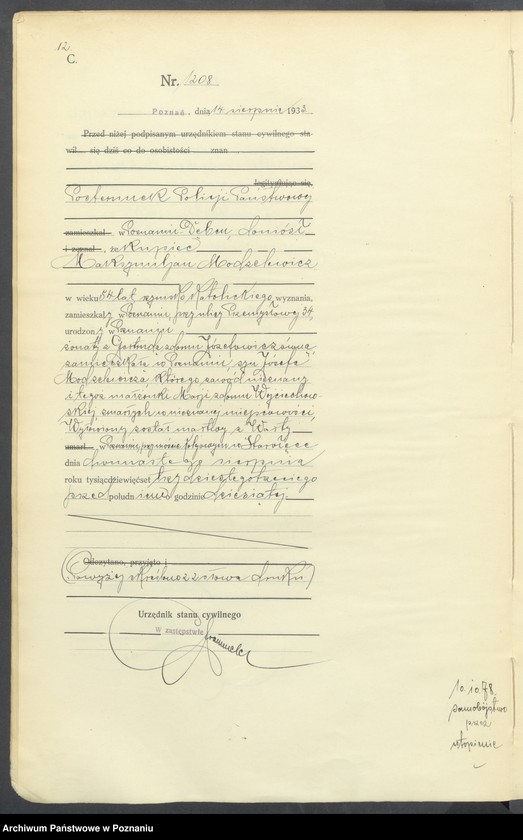 12
C.
Nr. 1208
Poznań, dnia 14 sierpnia 1933
Przed niżej podpisanym urzędnikiem stanu cywilnego sta
wił się dziś co do osobistości znan
legitymując się,
Posterunek Policji Państwowej
zamieszkał w Poznaniu Dębcu, doniósł
i zeznał, że kupiec
Maksymiljan Modzelewicz
w wieku 54 lat, rzymsko Katolickiego wyznania,
zamieszkały w Poznaniu, przy ulicy Przemysłowej 34,
urodzony w Poznaniu
żonaty z zdomu Józefowicz
zamieszkałą w Poznaniu, syn Józefa
Modzelewicza, którego zawód nieznany
i tegoż małżonki Marji zdomu
zmarłych w nieznanej miejscowości,
Wyłowiony został martwy z Warty
zmarł w Poznaniu, przy moście
dnia dwunastego sierpnia
roku tysiącdziewięćset trzydziestego trzeciego
przed południem o godzinie dziesiątej.
Odczytano, przyjęto i
Powyżej skreślono słowa druku
Urzędnik stanu cywilnego
W zastępstwie
10.10.78.
samobójstwo
przez
utopienie
Archiwum Państwowe w Poznaniu